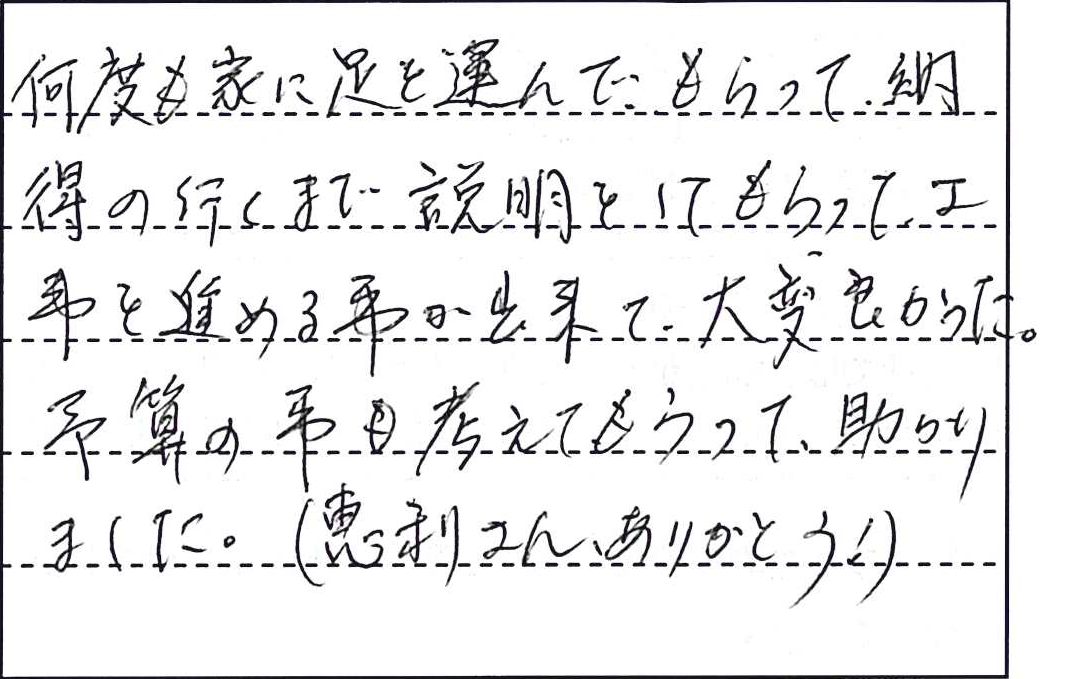 何度も家に足を運んでもらって、納
得の行くまで説明をしてもらって、工
事を進める事が出来て、大変良かった。
予算の事も考えてもらって、助かり
ました。(恵利さん、ありがとう!)